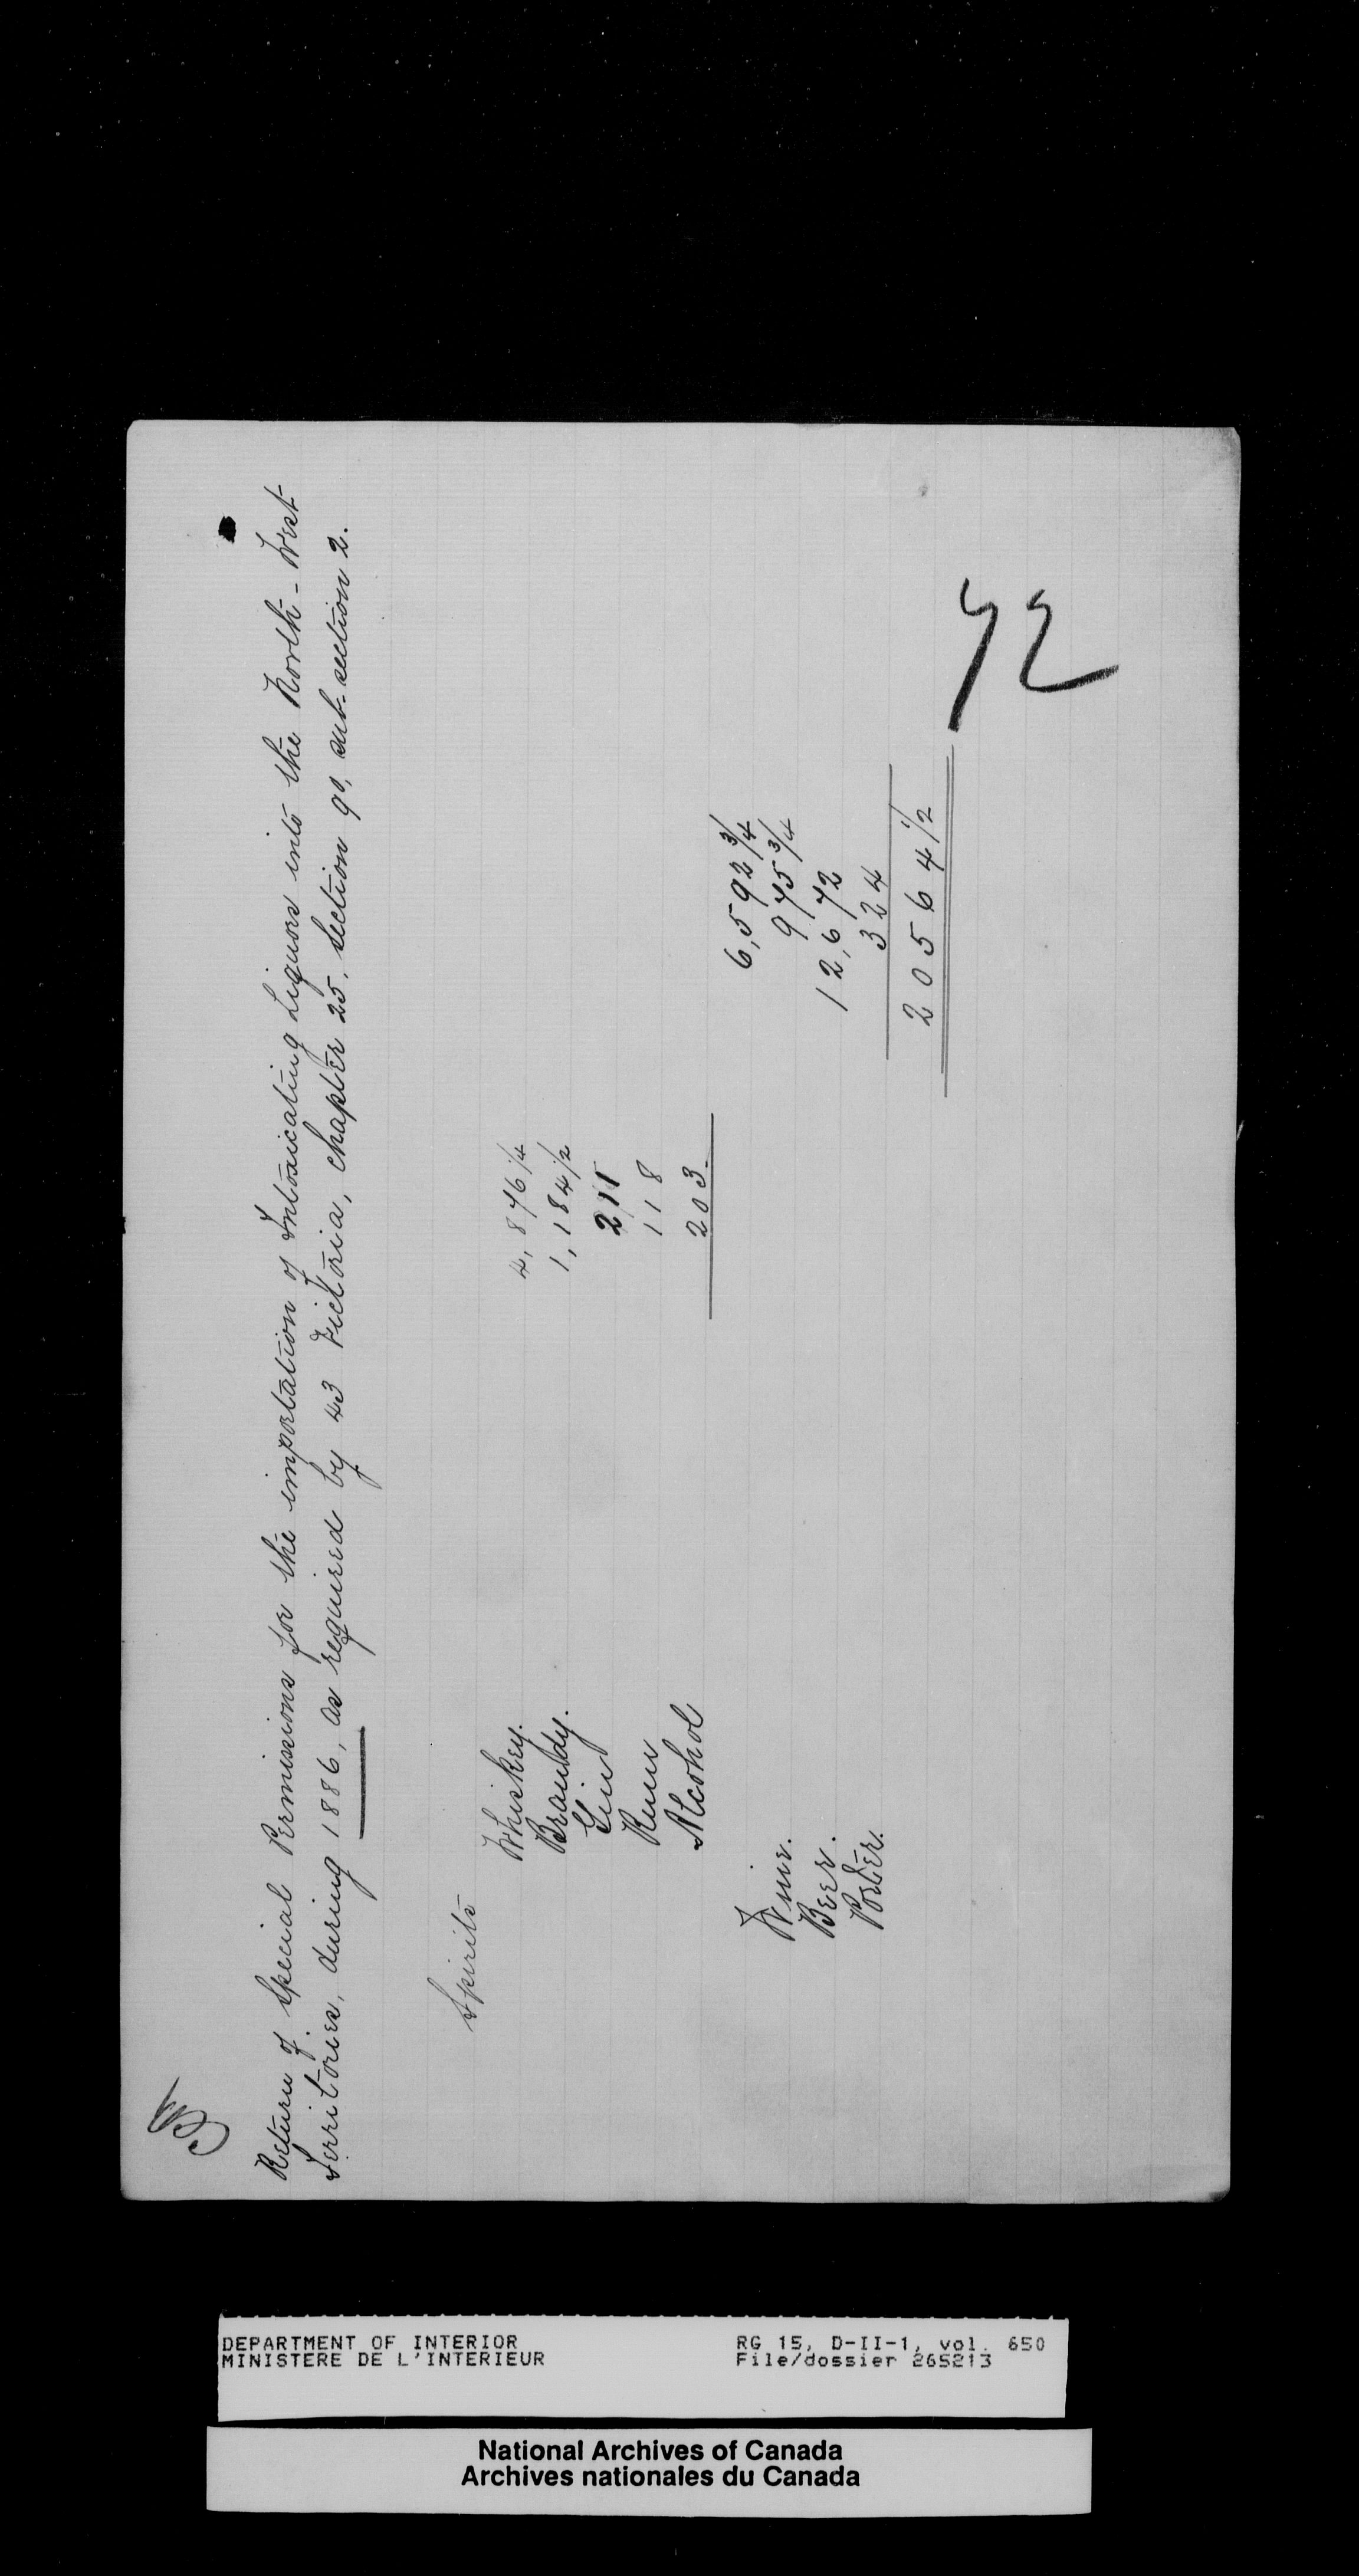 Return of Special Permissions for the importation of Intoxicating Liquors into the North-West
Territories, during 1886, as required by 43 Victoria, chapter 25, Section 90, sub-section 2.
Spirits
Whiskey. 4,876 1/4
Brandy. 1,184 1/2
Gin 211
Rum 118
Alcohol 203
6,592 3/4
Wine. 975 3/4
Beer. 12,672
Porter. 324
20564 1/2
72
DEPARTMENT OF INTERIOR
MINISTERE DE L'INTERIEUR
RG 15, D-II-1, vol. 650
File/dossier 265213
National Archives of Canada
Archives nationales du Canada